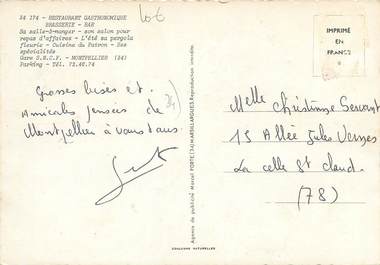 34 174 - RESTAURANT GASTRONOMIQUE
BRASSERIE - BAR
Sa salle-à-manger - son salon pour
repas d'affaires - L'été sa pergola
fleurie - Cuisine du Patron - Ses
spécialités
Gare S.N.C.F. - MONTPELLIER (34)
Parking - Tél. 72.48.74
IMPRIMÉ
EN
FRANCE
Grosses bises et
Amicales pensées de
Montpellier à vous tous.
34
Agence de publicité Marcel PORTE (34) MARSILLARGUES Reproduction interdite
Melle Christiane
15 Allée Jules Vernes
La celle St Cloud
(78)
COULEURS NATURELLES